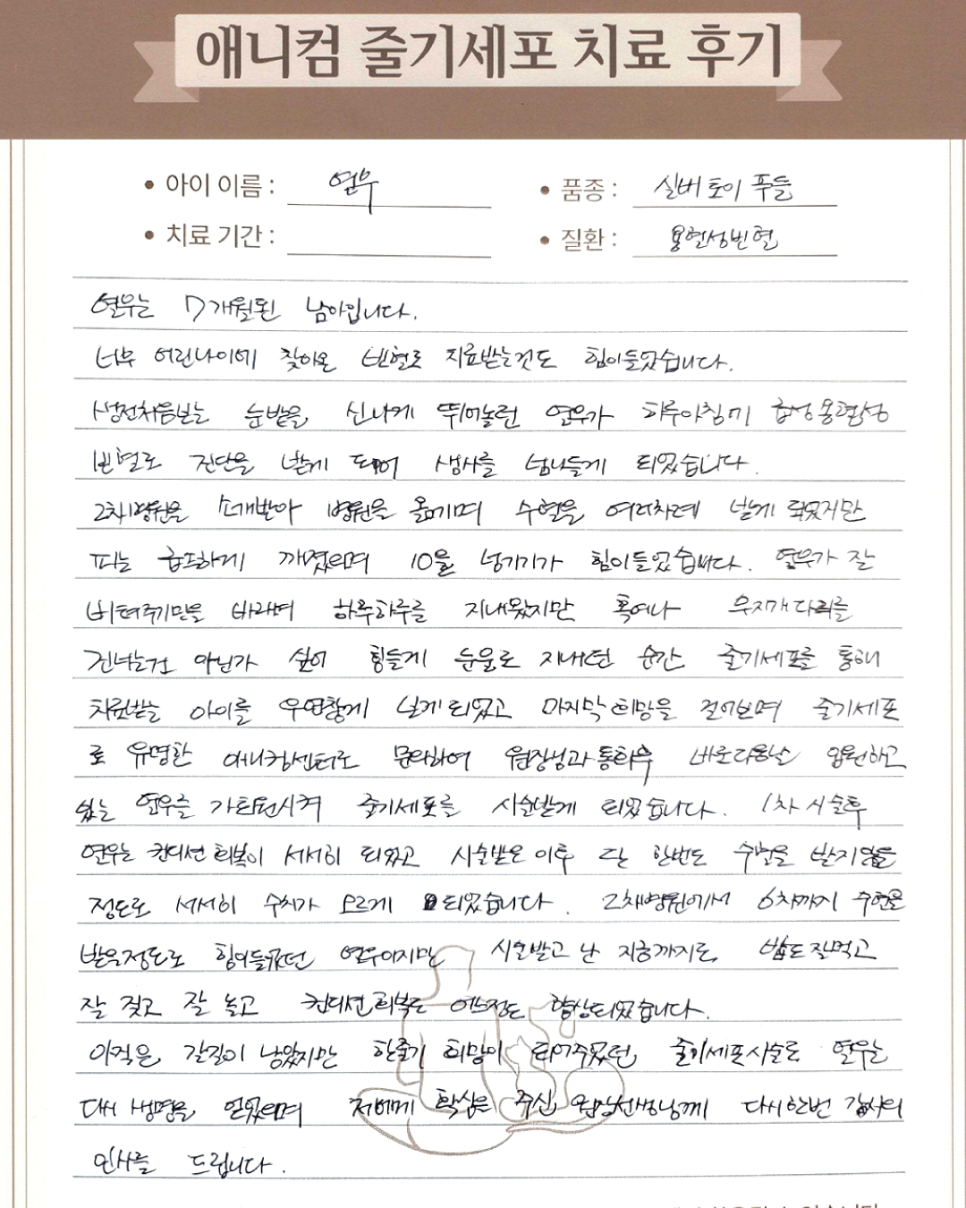 애니컴 줄기세포 치료 후기
• 아이 이름 : 연우 • 품종 : 실버 토이 푸들
• 치료 기간 : • 질환 : 용혈성빈혈
연우는 7개월된 남아입니다.
너무 어린나이에 찾아온 빈혈로 치료받는것도 힘이들었습니다.
생전처음보는 눈밭을 신나게 뛰어놀던 연우가 하루아침에 급성용혈성
빈혈로 진단을 받게 되어 생사를 넘나들게 되었습니다.
2차병원을 소개받아 병원을 옮기며 수혈을 여러차례 받게 되었지만
피는 급하게 깨졌으며 10을 넘기기가 힘이들었습니다. 연우가 잘
버텨주기만을 바라며 하루하루를 지내왔지만 혹여나 무지개다리를
건너는건 아닌가 싶어 힘들게 눈물로 지내던 순간 줄기세포를 통해
치료받는 아이를 우연찮게 보게되었고 마지막희망을 걸어보며 줄기세포
로 유명한 애니컴센터로 문의하여 원장님과 통화후 바로다음날 입원하고
있는 연우를 가퇴원시켜 줄기세포를 시술받게 되었습니다. 1차 시술후
연우는 컨디션 회복이 서서히 되었고 시술받은 이후 단 한번도 수혈을 받지않을
정도로 서서히 수치가 오르게 되었습니다. 2차병원에서 6차까지 수혈을
받을정도로 힘이들었던 연우이지만 시술받고 난 지금까지도, 밥도 잘먹고
잘 짖고 잘 놀고 컨디션회복도 어느정도 향상되었습니다.
아직은 갈길이 남았지만 한줄기 희망이 되어주었던 줄기세포시술로 연우는
다시 생명을 얻었으며 저에게 확신을 주신 원장선생님께 다시한번 감사의
인사를 드립니다.